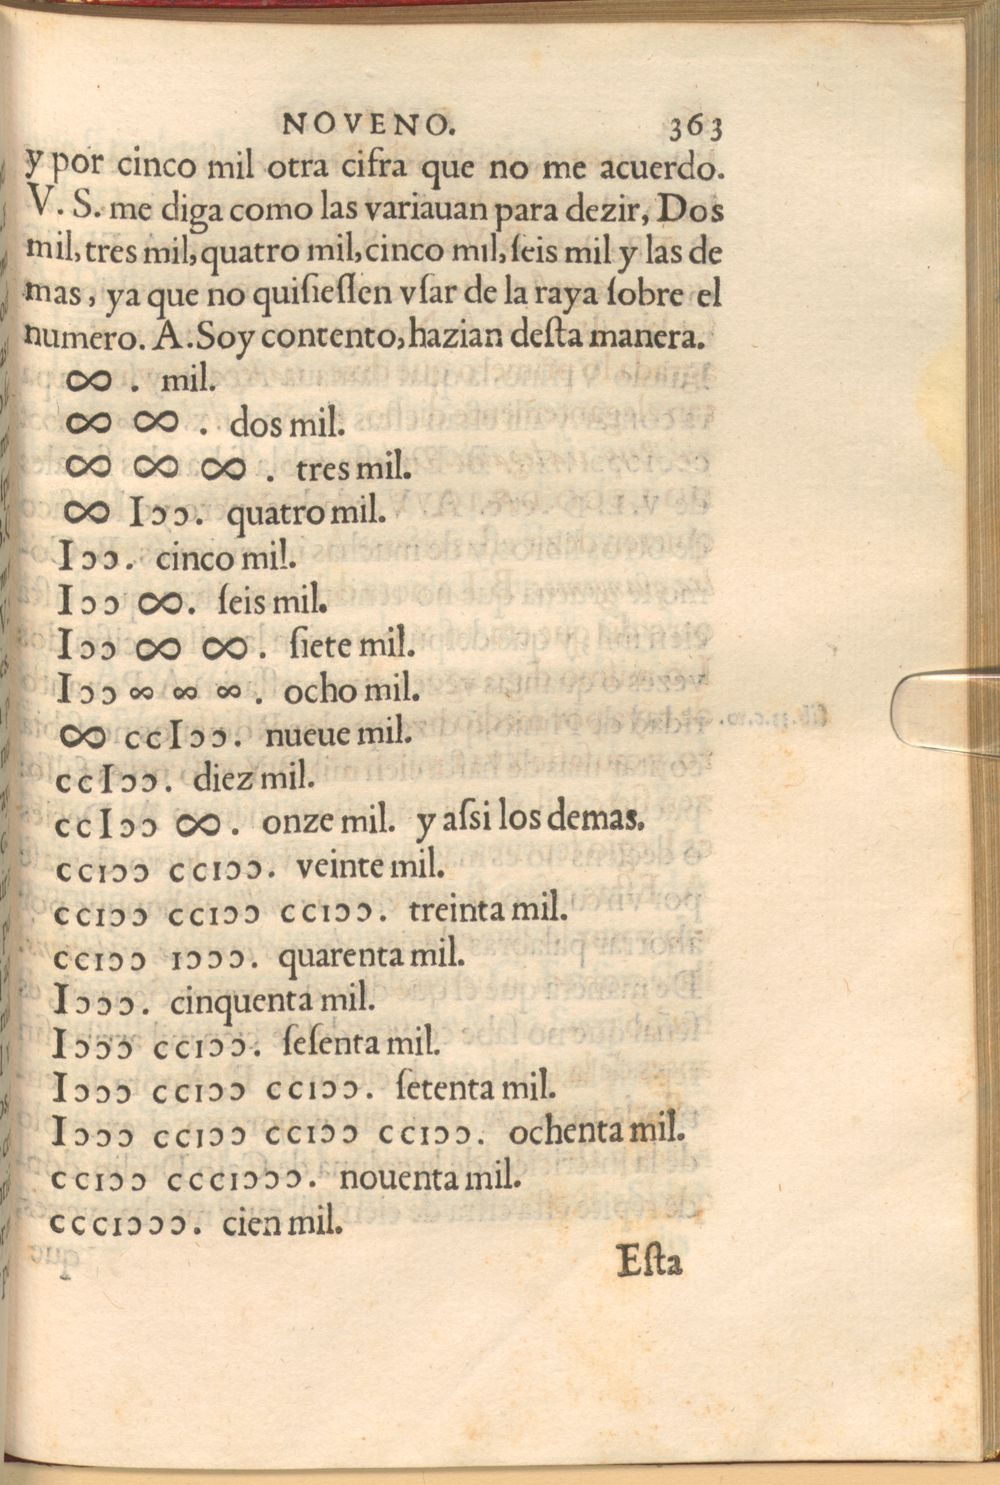 NOVENO. 363
y por cinco mil otra cifra que no me acuerdo.
V. S. me diga como las variauan para dezir, Dos
mil, tres mil, quatro mil, cinco mil, ſeis mil y las de
mas, ya que no quiſieſſen vſar de la raya ſobre el
numero. A. Soy contento, hazian deſta manera.
ↀ . mil.
ↀ ↀ . dos mil.
ↀ ↀ ↀ . tres mil.
ↀ Iↄↄ. quatro mil.
Iↄↄ. cinco mil.
Iↄↄ ↀ. ſeis mil.
Iↄↄ ↀ ↀ . ſiete mil.
Iↄↄ ↀ ↀ ↀ . ocho mil.
ↀ ccIↄↄ. nueue mil.
ccIↄↄ. diez mil.
ccIↄↄ ↀ . onze mil. y aſsi los demas.
ccıↄↄ ccıↄↄ. veinte mil.
ccıↄↄ ccıↄↄ ccıↄↄ. treinta mil.
ccıↄↄ ıↄↄↄ. quarenta mil.
Iↄↄↄ. cinquenta mil.
Iↄↄↄ ccıↄↄ. ſeſenta mil.
Iↄↄↄ ccıↄↄ ccıↄↄ. ſetenta mil.
Iↄↄↄ ccıↄↄ ccıↄↄ ccıↄↄ. ochenta mil.
ccıↄↄ cccıↄↄↄ. nouenta mil.
cccıↄↄↄ. cien mil.
Eſta